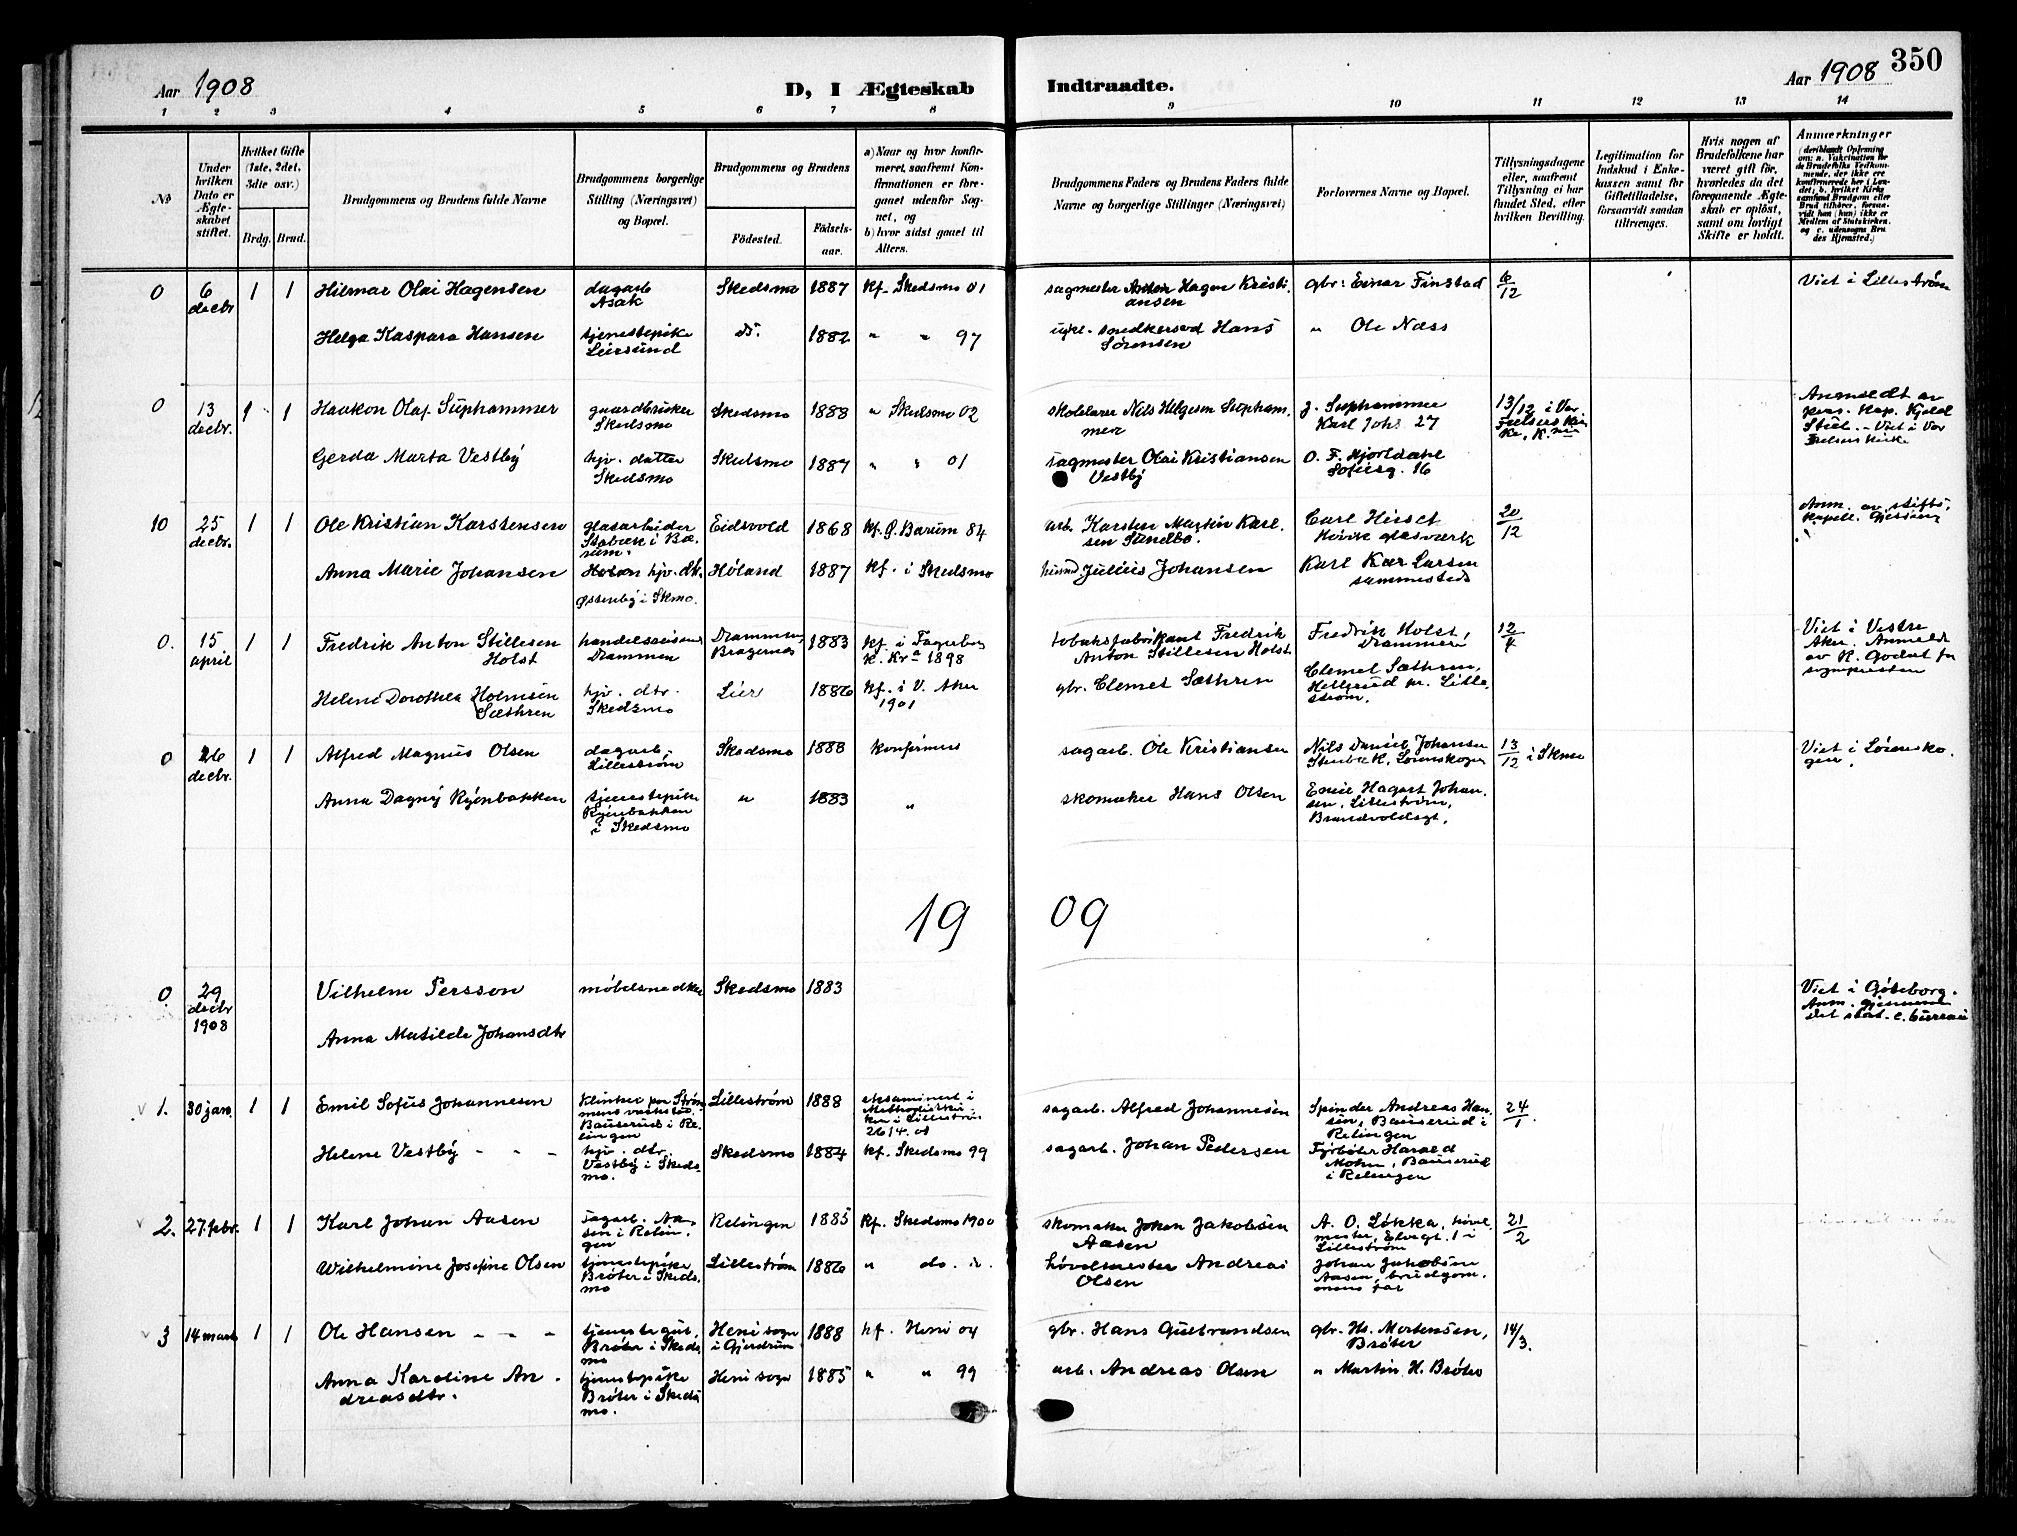 Aar 1908
D, I Ægteskab Indtraadte.
Aar 1908 350
1 2 3 4 5 6 7 8 9 10 11 12 13 14
No
Under hvilken Dato er Ægteskabet stiftet.
Hvilket Gifte (1ste, 2det, 3die osv.)
Brdg. Brud.
Brudgommens og Brudens fulde Navne
Brudgommens borgerlige Stilling (Næringsvei) og Bopæl.
Brudgommens og Brudens
Fødested. Fødselsaar.
a) Naar og hvor konfirmeret, saafremt Konfirmationen er foregaaet udenfor Sognet, og
b) hvor sidst gaaet til Alters.
Brudgommens Faders og Brudens Faders fulde Navne og borgerlige Stillinger (Næringsvei)
Forlovernes Navne og Bopæl.
Tillysningsdagene eller, saafremt Tillysning ei har fundet Sted, efter hvilken Bevilling.
Legitimation for Indskud i Enkekassen samt for Giftetilladelse, forsaavidt saadan tiltrænges.
Hvis nogen af Brudefolkene har været gift før, hvorledes da det foregaaende Ægteskab er opløst, samt om lovligt Skifte er holdt.
Anmærkninger
0 6 decbr 1 1 Hilmar Olai Hagensen dagarb Asak Skedsmo 1887 kf. Skedsmo 01 sagmester Anton Hagen Kristiansen gbr. Einar Finstad 6/12 Viet i Lillestrøm
Helga Kaspara Hansen tjenestepike Leirsund do. 1882 " " 97 snedkersvd Hans Sørensen " Ole Næss
0 13 decbr. 1 1 Haakon Olaf Suphammer gaardbruker Skedsmo Skedsmo 1888 " Skedsmo 02 skolelærer Nils Helgesen Suphammer J. Suphammer Karl Johs 27 13/12 i Vor Frelsers Kirke, K.nia Anmeldt av pers. kap. Kjeld Stub. - Viet i Vor Frelsers Kirke
Gerda Marta Vestby hjv. datter Skedsmo Skedsmo 1887 " " 01 sagmester Olai Kristiansen Vestby O. F. Hjortdahl Sofiesg. 16
10 25 decbr. 1 1 Ole Kristian Karstensen glasarbeider Stabæk i Bærum. Eidsvold 1868 kf. Ø. Bærum 84 arb. Karsten Martin Karlsen Sundbo. Carl Hirsch Høvik glasværk 20/12 Anm. av stiftskapell. Gjessing
Anna Marie Johansen hjv. dtr. Østenby i Skmo. Høland 1887 kf. i Skedsmo Julius Johansen Karl Kær Larsen sammesteds
0. 15 april 1 1 Fredrik Anton Stillesen Holst handelsreisende Drammen Drammen, Bragernes 1883 kf. i Fagerborg K. Kr.a 1898 tobaksfabrikant Fredrik Anton Stillesen Holst Fredrik Holst, Drammen 12/4 Viet i Vestre Aker. Anmeldt av R. Godal for sognepresten
Helene Dorothea Holmsen Sæthren hjv. dtr. Skedsmo Lier 1886 kf. i V. Aker 1901 gbr. Clemet Sæthren Clemet Sæthren, Hellerud pr. Lillestrøm.
0 26 decbr. 1 1 Alfred Magnus Olsen dagarb. Lillestrøm Skedsmo 1888 konfirmert sagarb. Ole Kristiansen Nils Daniel Johansen Stenbæk, Lørenskogen 13/12 i Skmo Viet i Lørenskogen.
Anna Dagny Ryenbakken tjenestepike Ryenbakken i Skedsmo " 1883 " skomaker Hans Olsen Emil Hagart Johansen, Lillestrøm, Brandvoldsgt.
19 09
0. 29 decbr 1908 Vilhelm Persson møbelsnedker Skedsmo 1883 Viet i Gøteborg. Anm. gjennem det stat. c. bureau
Anna Matilde Johansdtr
1. 30 jan. 1 1 Emil Sofus Johannesen Klinker paa Strømmens værksted. Bauserud i Relingen Lillestrøm 1888 eksaminert i Methodistkirken i Lillestrøm 26/4. 08 sagarb. Alfred Johannesen Spinder Andreas Hansen, Bauserud i Relingen 24/1.
Helene Vestby - - - hjv. dtr. Vestby i Skedsmo. Skedsmo 1884 kf. Skedsmo 99 sagarb. Johan Pedersen Fyrbøter Harald Mohn, Bauserud i Relingen
2. 27. febr. 1 1 Karl Johan Aasen sagarb. Aasen i Relingen Relingen 1885 kf. Skedsmo 1900 skomaker Johan Jakobsen Aasen A. O. Løkka, høvelmester, Elvegt. 1 i Lillestrøm 21/2
Wilhelmine Josefine Olsen tjenestepike Brøter i Skedsmo Lillestrøm 1886 " do. " høvelmester Andreas Olsen Johan Jakobsen Aasen, brudgommens far
3 14 mars 1 1 Ole Hansen - - - tjenestegut, Brøter i Skedsmo Heni sogn i Gjerdrum 1888 kf. Heni 04 gbr. Hans Gulbrandsen gbr. Hs. Mortensen, Brøter 14/3.
Anna Karoline Andreasdtr. tjenestepike Brøter i Skedsmo. Heni sogn 1885 " " 99 arb. Andreas Olsen " Martin H. Brøter